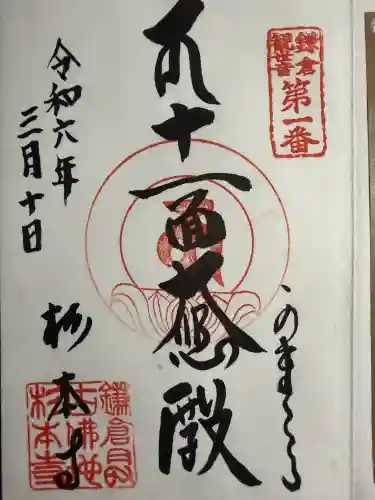 鎌倉
観音
第一番
十一面大悲殿
令和六年
三月十日
杉本寺
鎌倉最
古佛地
杉本寺